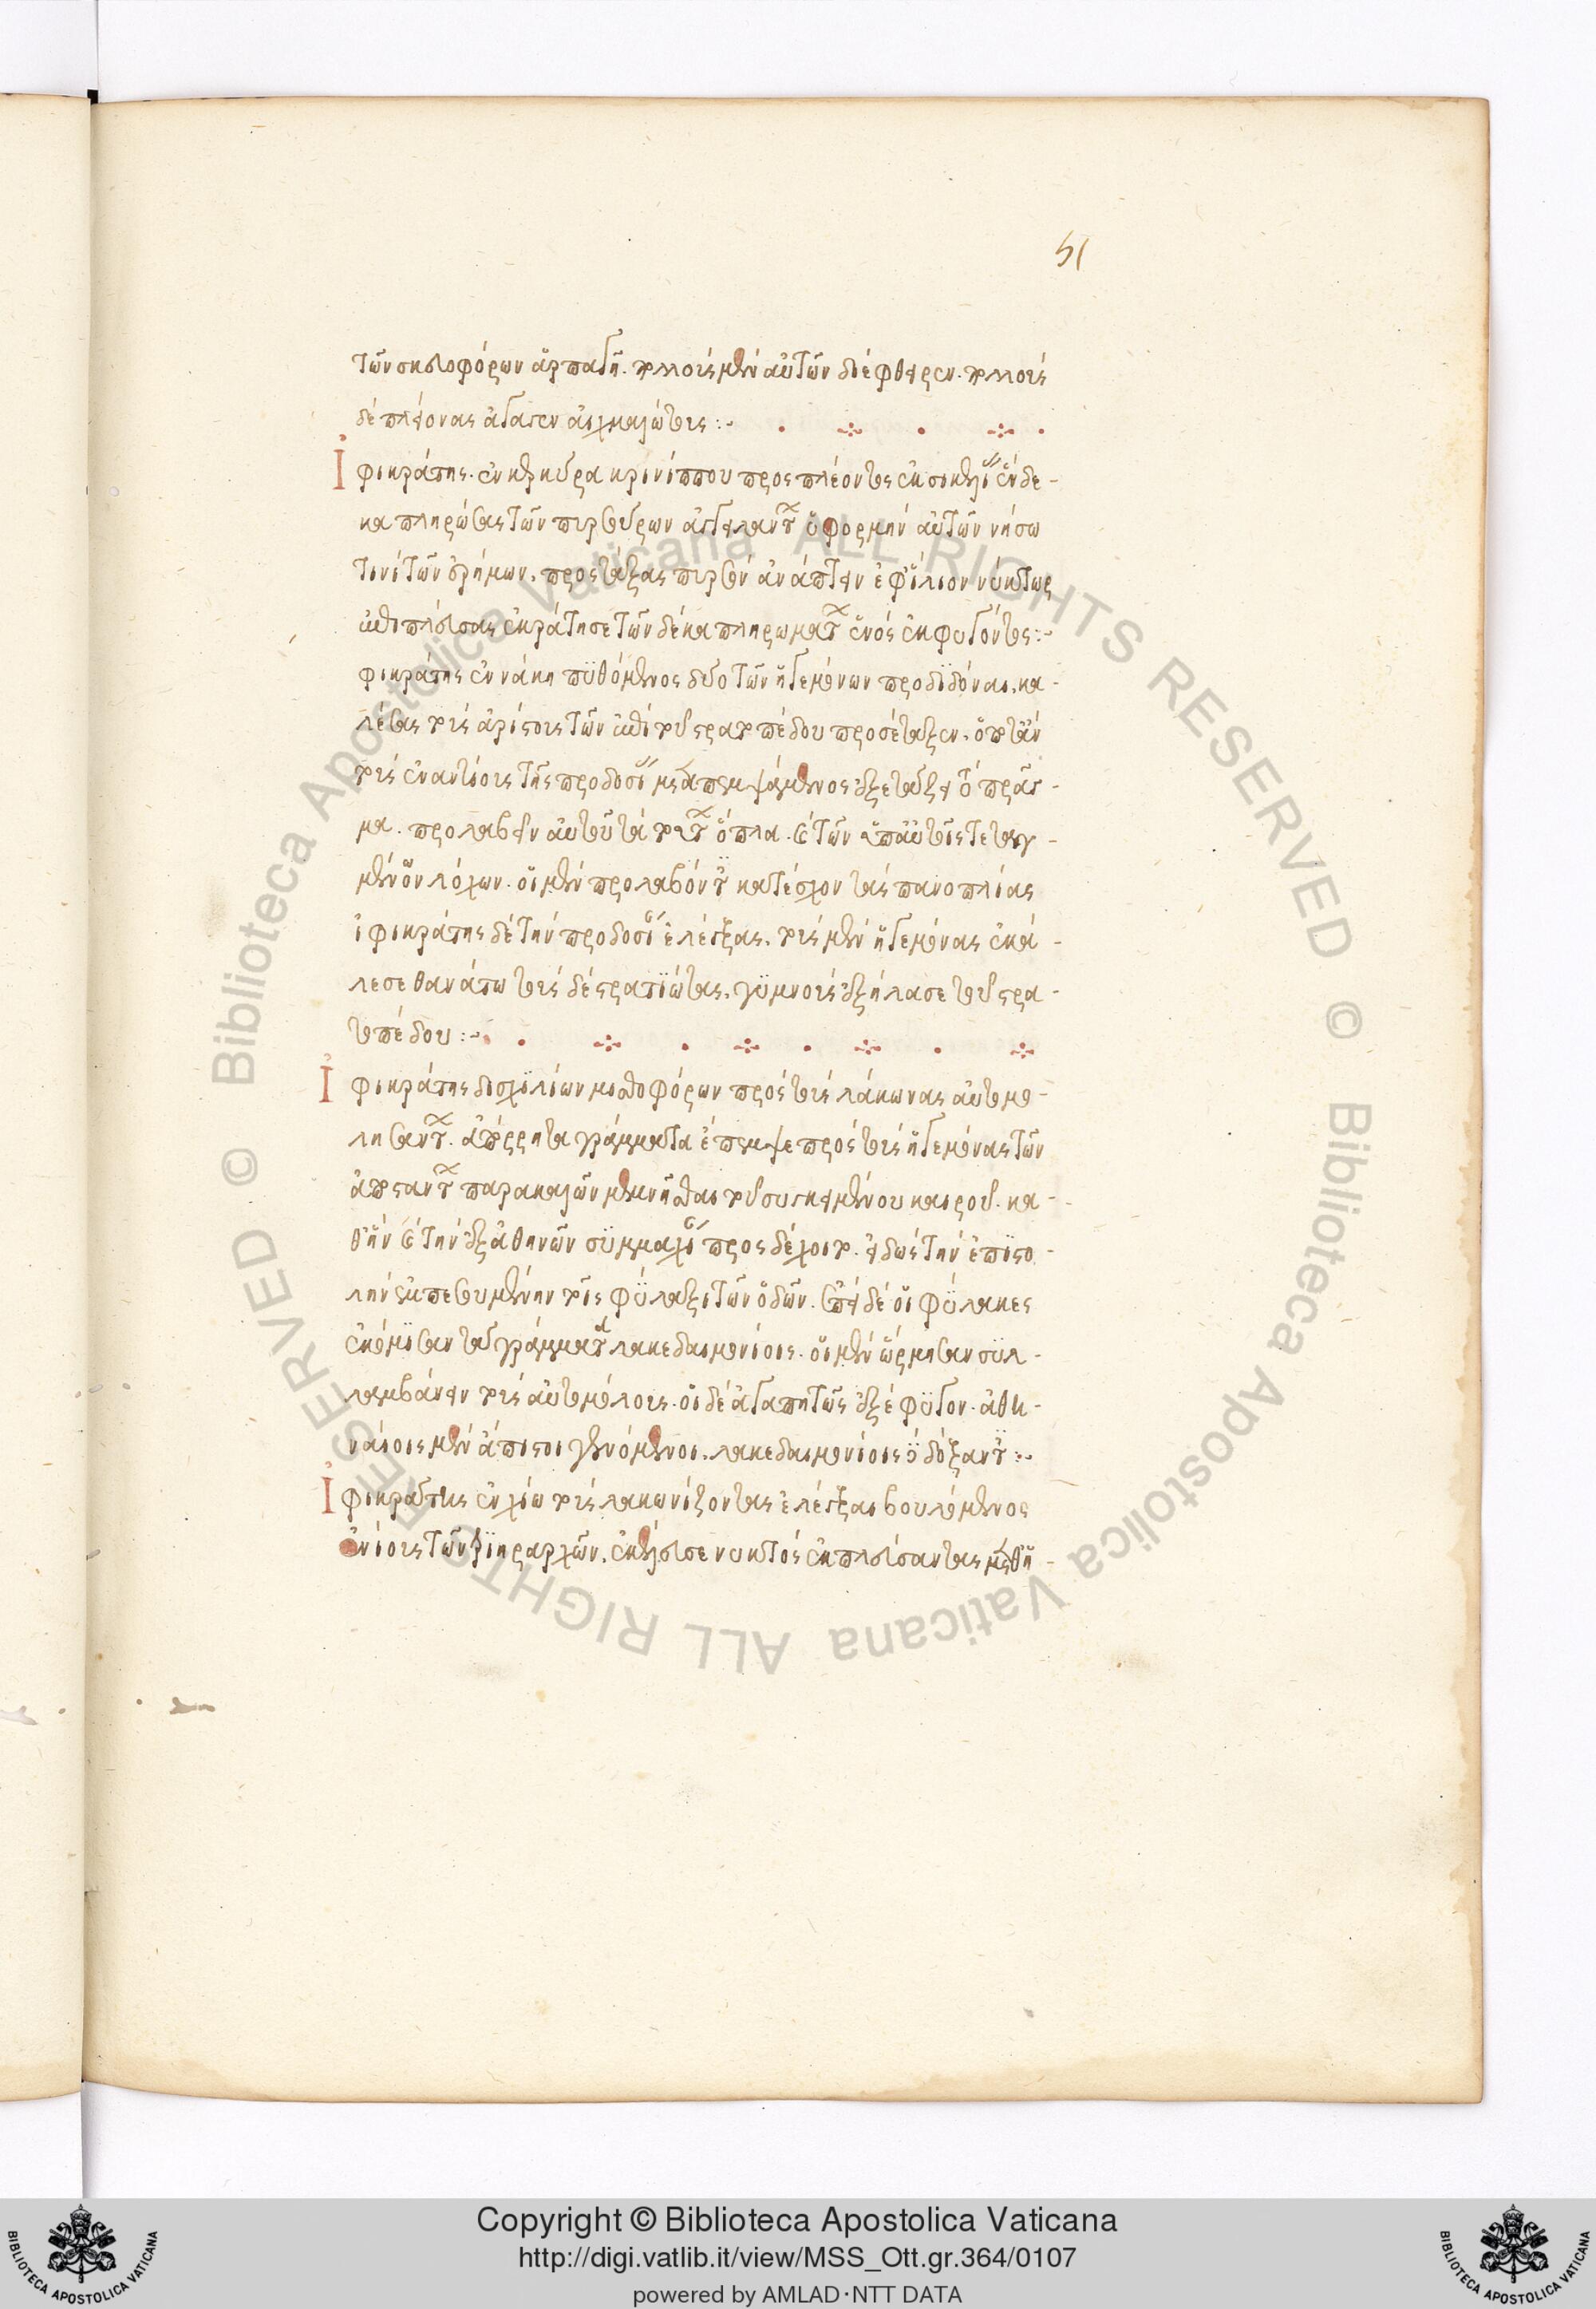 51
τῶν σκευοφόρων ἁρπαγῆ. πολλοὺς μὲν αὐτῶν διέφθειρεν. πολλοὺς
δὲ πλείονας ἤγαγεν αἰχμαλώτους :~
Ἰφικράτης. ἐν κερκύρα κρινίππου προσπλέοντος ἐκ σικελίας ἕνδε-
κα πληρώσας τῶν
τινὶ τῶν ἐρήμων. προστάξας πυρσὸν ἀνάπτειν φίλιον νύκτωρ
ἐπιπλεύσας ἐκράτησε τῶν δέκα πληρωμάτων ἑνὸς ἐκφυγόντος :~
φικράτης ἐν νάκη πυθόμενος δύο τῶν ἡγεμόνων προδιδόναι. κα-
λέσας τοὺς ἀρίστους τῶν ἐπὶ τοῦ στρατοπέδου προσέταξεν. ὅταν
τοὺς ἐναντίους τῆς προδοσίας μεταπεμψάμενος ἐξετάζει τὸ πρᾶγ-
μα. προλαβεῖν αὐτοῦ τὰ τούτων ὅπλα. καὶ τῶν ὑπ' αὐτοῖς τεταγ-
μένων λόχων. οἱ μὲν προλαβόντες κατέσχον τὰς πανοπλίας
ἰφικράτης δὲ τὴν προδοσίαν ἐλέγξας. τοὺς μὲν ἡγεμόνας ἐκό-
λασε θανάτω τοὺς δὲ στρατιώτας. γυμνοὺς ἐξήλασε τοῦ στρα-
τοπέδου :~
Ἰφικράτης δισχιλίων μισθοφόρων πρὸς τοὺς λάκωνας αὐτομο-
λησάντων. ἀπόρρητα γράμματα ἔπεμψε πρὸς τοὺς ἡγεμόνας τῶν
ἀποστάντων παρακαλῶν μεμνῆσθαι τοῦ συγκειμένου καιροῦ. κα-
θ' ὃν καὶ τὴν ἐξ ἀθηνῶν συμμαχίαν προσδέχοιτο. εἰδὼς τὴν ἐπιστο-
λὴν ἐμπεσουμένην τοῖς φύλαξι τῶν ὁδῶν. ἐπεὶ δὲ οἱ φύλακες
ἐκόμισαν τὰ γράμματα λακεδαιμονίοις. οἱ μὲν ὥρμησαν συλ-
λαμβάνειν τοὺς αὐτομόλους. οἱ δὲ ἀγαπητῶς ἐξέφυγον. ἀθη-
ναίοις μὲν ἄπιστοι γενόμενοι. λακεδαιμονίοις δὲ δόξαντες :~
Ἰφικράτης ἐν χίω τοὺς λακωνίζοντας ἐλέγξαι βουλόμενος
ἐνίους τῶν τριηράρχων. ἐκέλευσε νυκτὸς ἐκπλεύσαντας
Copyright © Biblioteca Apostolica Vaticana
http://digi.vatlib.it/view/MSS_Ott.gr.364/0107
powered by AMLAD·NTT DATA
BIBLIOTECA APOSTOLICA VATICANA
BIBLIOTECA APOSTOLICA VATICANA
© Biblioteca Apostolica Vaticana ALL RIGHTS RESERVED
© Biblioteca Apostolica Vaticana ALL RIGHTS RESERVED